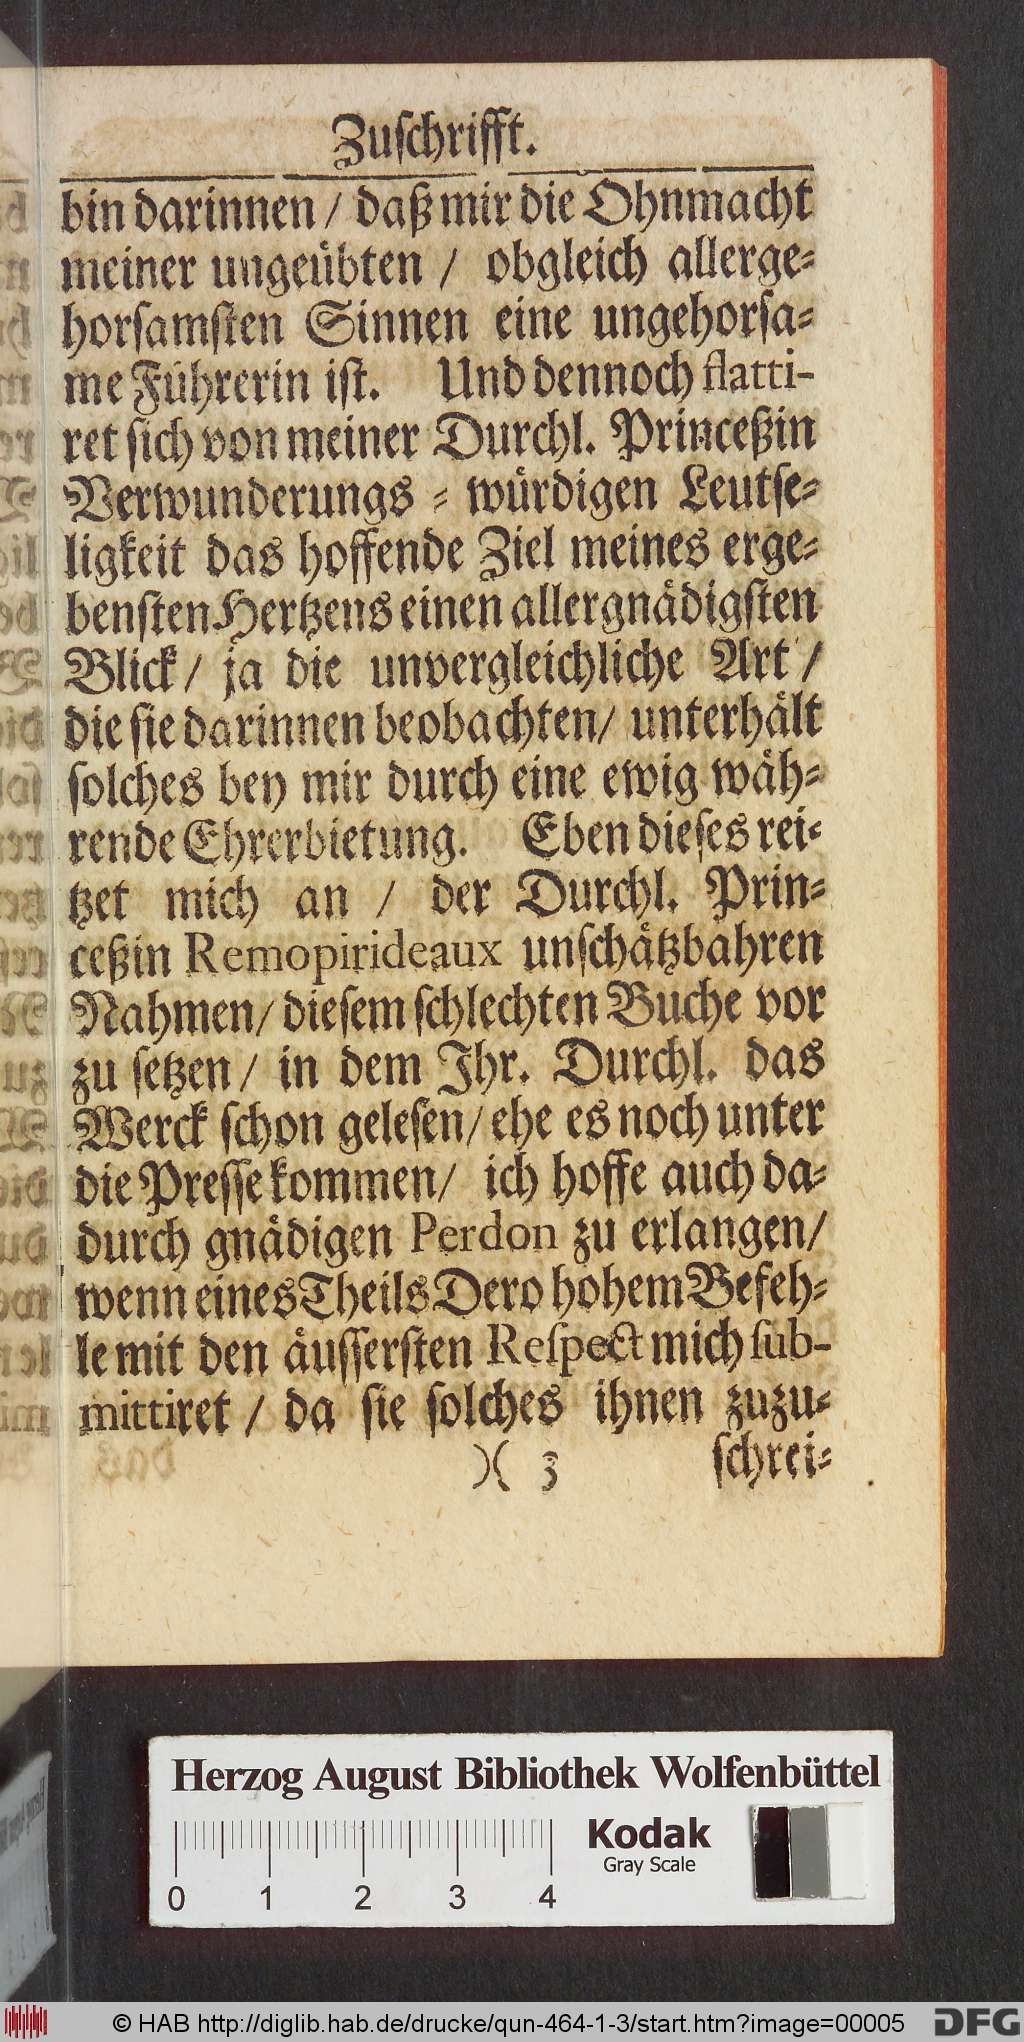 Zuſchrifft.
bin darinnen / daß mir die Ohnmacht
meiner ungeübten / obgleich allerge-
horſamſten Sinnen eine ungehorſa-
me Führerin iſt. Und dennoch flatti-
ret ſich von meiner Durchl. Princeßin
Verwunderungs - würdigen Leutſe-
ligkeit das hoffende Ziel meines erge-
benſten Hertzens einen allergnädigſten
Blick / ja die unvergleichliche Art /
die ſie darinnen beobachten / unterhält
ſolches bey mir durch eine ewig wäh-
rende Ehrerbietung. Eben dieſes rei-
tzet mich an / der Durchl. Prin-
ceßin Remopirideaux unſchätzbahren
Nahmen / dieſem ſchlechten Buche vor
zu ſetzen / in dem Ihr. Durchl. das
Werck ſchon geleſen / ehe es noch unter
die Preſſe kommen / ich hoffe auch da-
durch gnädigen Perdon zu erlangen /
wenn eines Theils Dero hohem Befeh-
le mit den äuſſerſten Reſpect mich ſub-
mittiret / da ſie ſolches ihnen zuzu-
)( 3 ſchrei-
Herzog August Bibliothek Wolfenbüttel
Kodak
Gray Scale
0 1 2 3 4
© HAB http://diglib.hab.de/drucke/qun-464-1-3/start.htm?image=00005
DFG